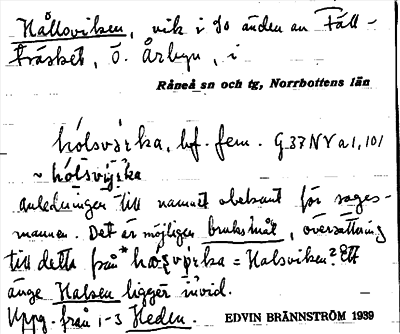 Hållsviken, vik i so änden av Fäll-
träsket, ö. Årbyn, i
Råneå sn och tg, Norrbottens län
hólsvirka, bf. fem. G 37 NV a 1, 101
~ hólsvirka
anledningen till namnet obekant för sages-
mannen. Det är möjligen bruksmål, översättning
till detta från * = Halsviken? Ett
änge Halsen ligger invid.
Uppg. från 1-3 Heden. EDVIN BRÄNNSTRÖM 1939